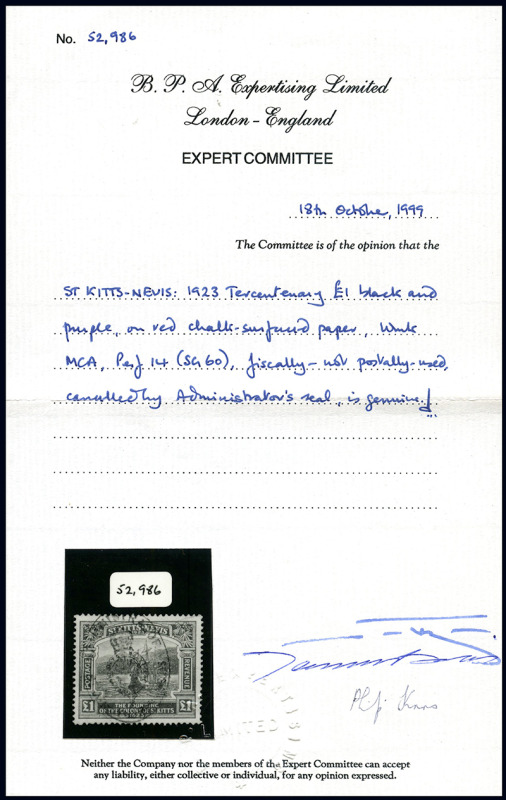 No. 52,986
B. P. A. Expertising Limited
London - England
EXPERT COMMITTEE
18th October, 1999
The Committee is of the opinion that the
ST KITTS-NEVIS: 1923 Tercentenary £1 black and
purple, on red chalk-surfaced paper, Wmk
MCA, Perf 14 (SG 60), fiscally - not postally-used,
cancelled by Administrator's seal, is genuine.
52,986
ST. KITTS-NEVIS
POSTAGE
REVENUE
THE FOUNDING
OF THE COLONY OF ST. KITTS
£1 £1
LIMITED
Neither the Company nor the members of the Expert Committee can accept
any liability, either collective or individual, for any opinion expressed.